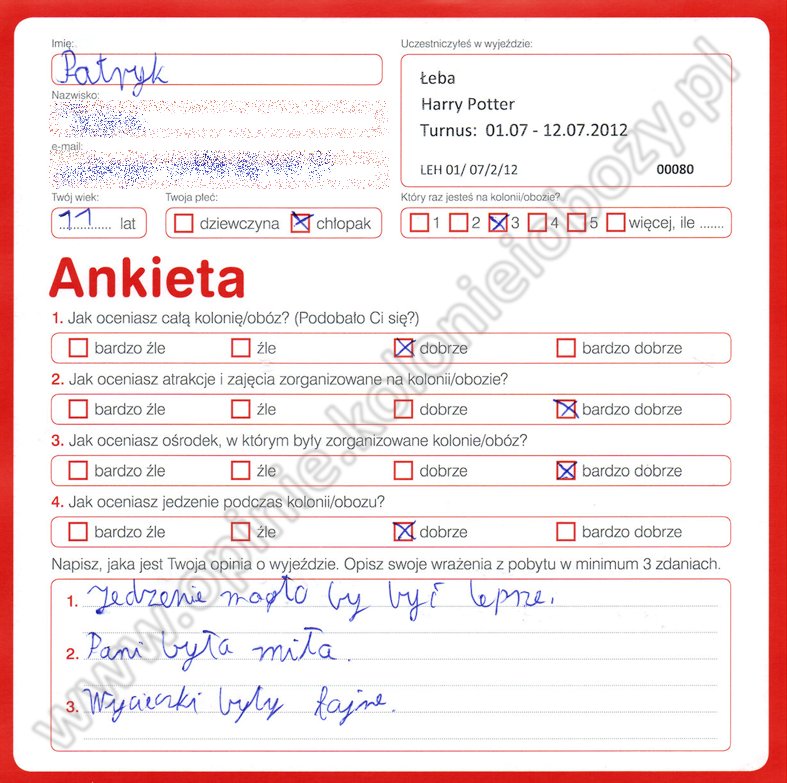 Imię:
Patryk
Nazwisko:
e-mail:
Twój wiek:
11 lat
Twoja płeć:
dziewczyna chłopak
Uczestniczyłeś w wyjeździe:
Łeba
Harry Potter
Turnus: 01.07 - 12.07.2012
LEH 01/ 07/2/12 00080
Który raz jesteś na kolonii/obozie?
1 2 3 4 5 więcej, ile .......
Ankieta
1. Jak oceniasz całą kolonię/obóz? (Podobało Ci się?)
bardzo źle źle dobrze bardzo dobrze
2. Jak oceniasz atrakcje i zajęcia zorganizowane na kolonii/obozie?
bardzo źle źle dobrze bardzo dobrze
3. Jak oceniasz ośrodek, w którym były zorganizowane kolonie/obóz?
bardzo źle źle dobrze bardzo dobrze
4. Jak oceniasz jedzenie podczas kolonii/obozu?
bardzo źle źle dobrze bardzo dobrze
Napisz, jaka jest Twoja opinia o wyjeździe. Opisz swoje wrażenia z pobytu w minimum 3 zdaniach.
1. Jedzenie mogło by być lepsze.
2. Pani była miła.
3. Wycieczki były fajne.
www.opinie.kolonieiobozy.pl